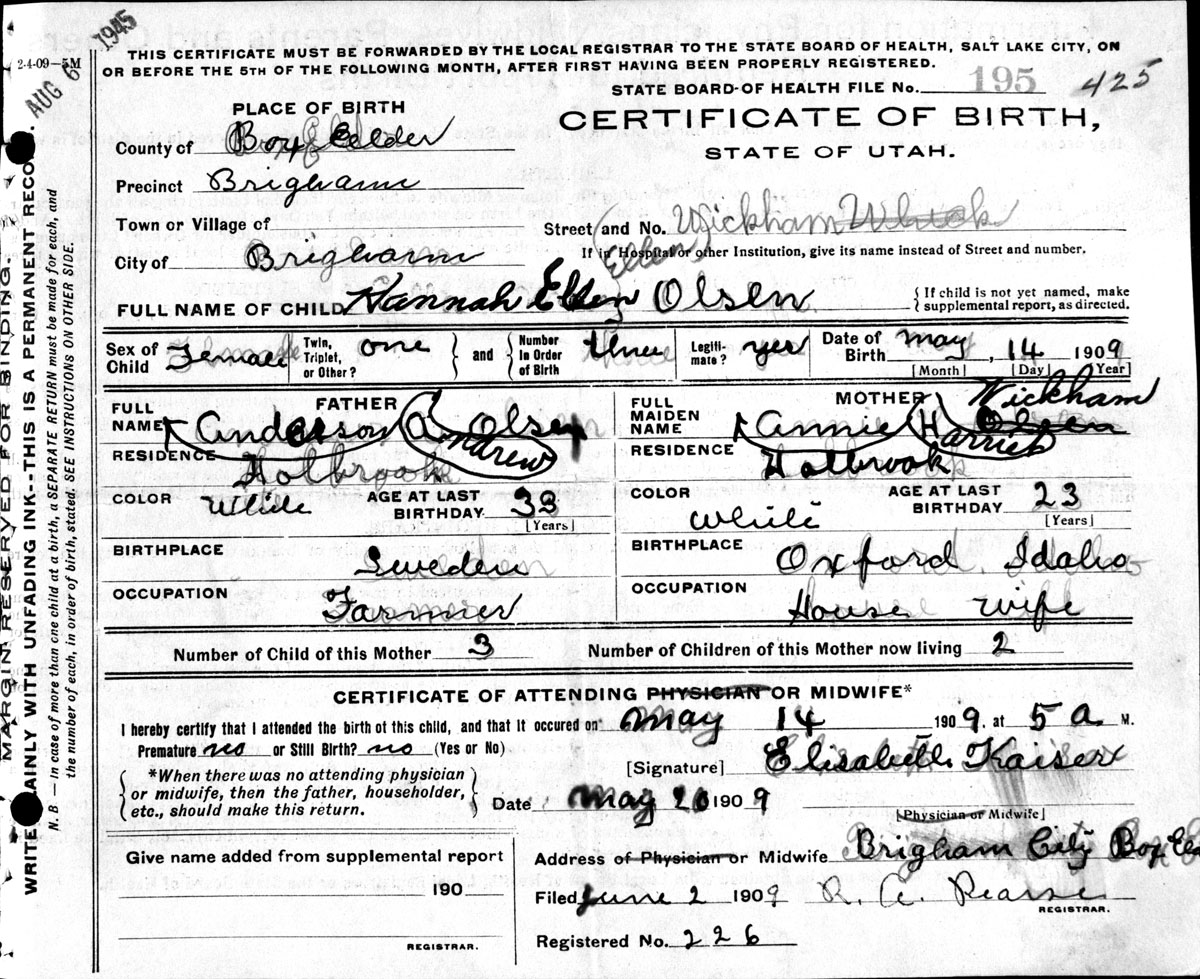 1945
AUG 6
2-4-09—5M
THIS CERTIFICATE MUST BE FORWARDED BY THE LOCAL REGISTRAR TO THE STATE BOARD OF HEALTH, SALT LAKE CITY, ON
OR BEFORE THE 5TH OF THE FOLLOWING MONTH, AFTER FIRST HAVING BEEN PROPERLY REGISTERED.
STATE BOARD OF HEALTH FILE No. 195 425
PLACE OF BIRTH
CERTIFICATE OF BIRTH,
STATE OF UTAH.
County of Box Elder
Precinct Brigham
Town or Village of
Street and No. Wickham
City of Brigham
If in Hospital or other Institution, give its name instead of Street and number.
(Ellen)
FULL NAME OF CHILD Hannah Ellen Olsen
{If child is not yet named, make
supplemental report, as directed.
Sex of Child Female
Twin, Triplet, or Other? one
and
Number in Order of Birth three
Legiti-mate? yes
Date of Birth May, 14 1909
[Month] [Day] [Year]
FATHER
FULL NAME Anderson A. Olsen
Andrew
RESIDENCE Holbrook
COLOR White
AGE AT LAST BIRTHDAY 33
[Years]
BIRTHPLACE Sweden
OCCUPATION Farmer
MOTHER
FULL MAIDEN NAME Annie H. Olsen
Wickham
Harriet
RESIDENCE Holbrook
COLOR White
AGE AT LAST BIRTHDAY 23
[Years]
BIRTHPLACE Oxford Idaho
OCCUPATION House wife
Number of Child of this Mother 3
Number of Children of this Mother now living 2
CERTIFICATE OF ATTENDING PHYSICIAN OR MIDWIFE*
I hereby certify that I attended the birth of this child, and that it occured on May 14 1909, at 5 a M.
Premature no or Still Birth? no (Yes or No)
[Signature] Elisabeth Kaiser
*When there was no attending physician
or midwife, then the father, householder,
etc., should make this return.
Date May 20 1909
[Physician or Midwife]
Give name added from supplemental report
190
REGISTRAR.
Address of Physician or Midwife Brigham City Box El
Filed June 2 1909 R. A. Pearse
REGISTRAR.
Registered No. 226
MARGIN RESERVED FOR BINDING.
WRITE AINLY WITH UNFADING INK--THIS IS A PERMANENT RECO
N. B.—In case of more than one child at a birth, a SEPARATE RETURN must be made for each, and
the number of each, in order of birth, stated. SEE INSTRUCTIONS ON OTHER SIDE.